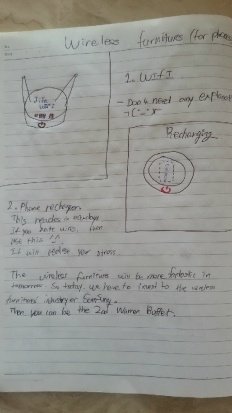 Wireless furnitures (for phone
2. WIFI
- Don't need any explan
Recharging
2. Phone recharger.
This machine is
If you hate wires,
use this ^^
It will reduce your stress.
The wireless furniture will be more fantastic in
tomorrow. So today, we have to invest to the wireless
furnitures
Then you can be the 2nd Warren Buffet.